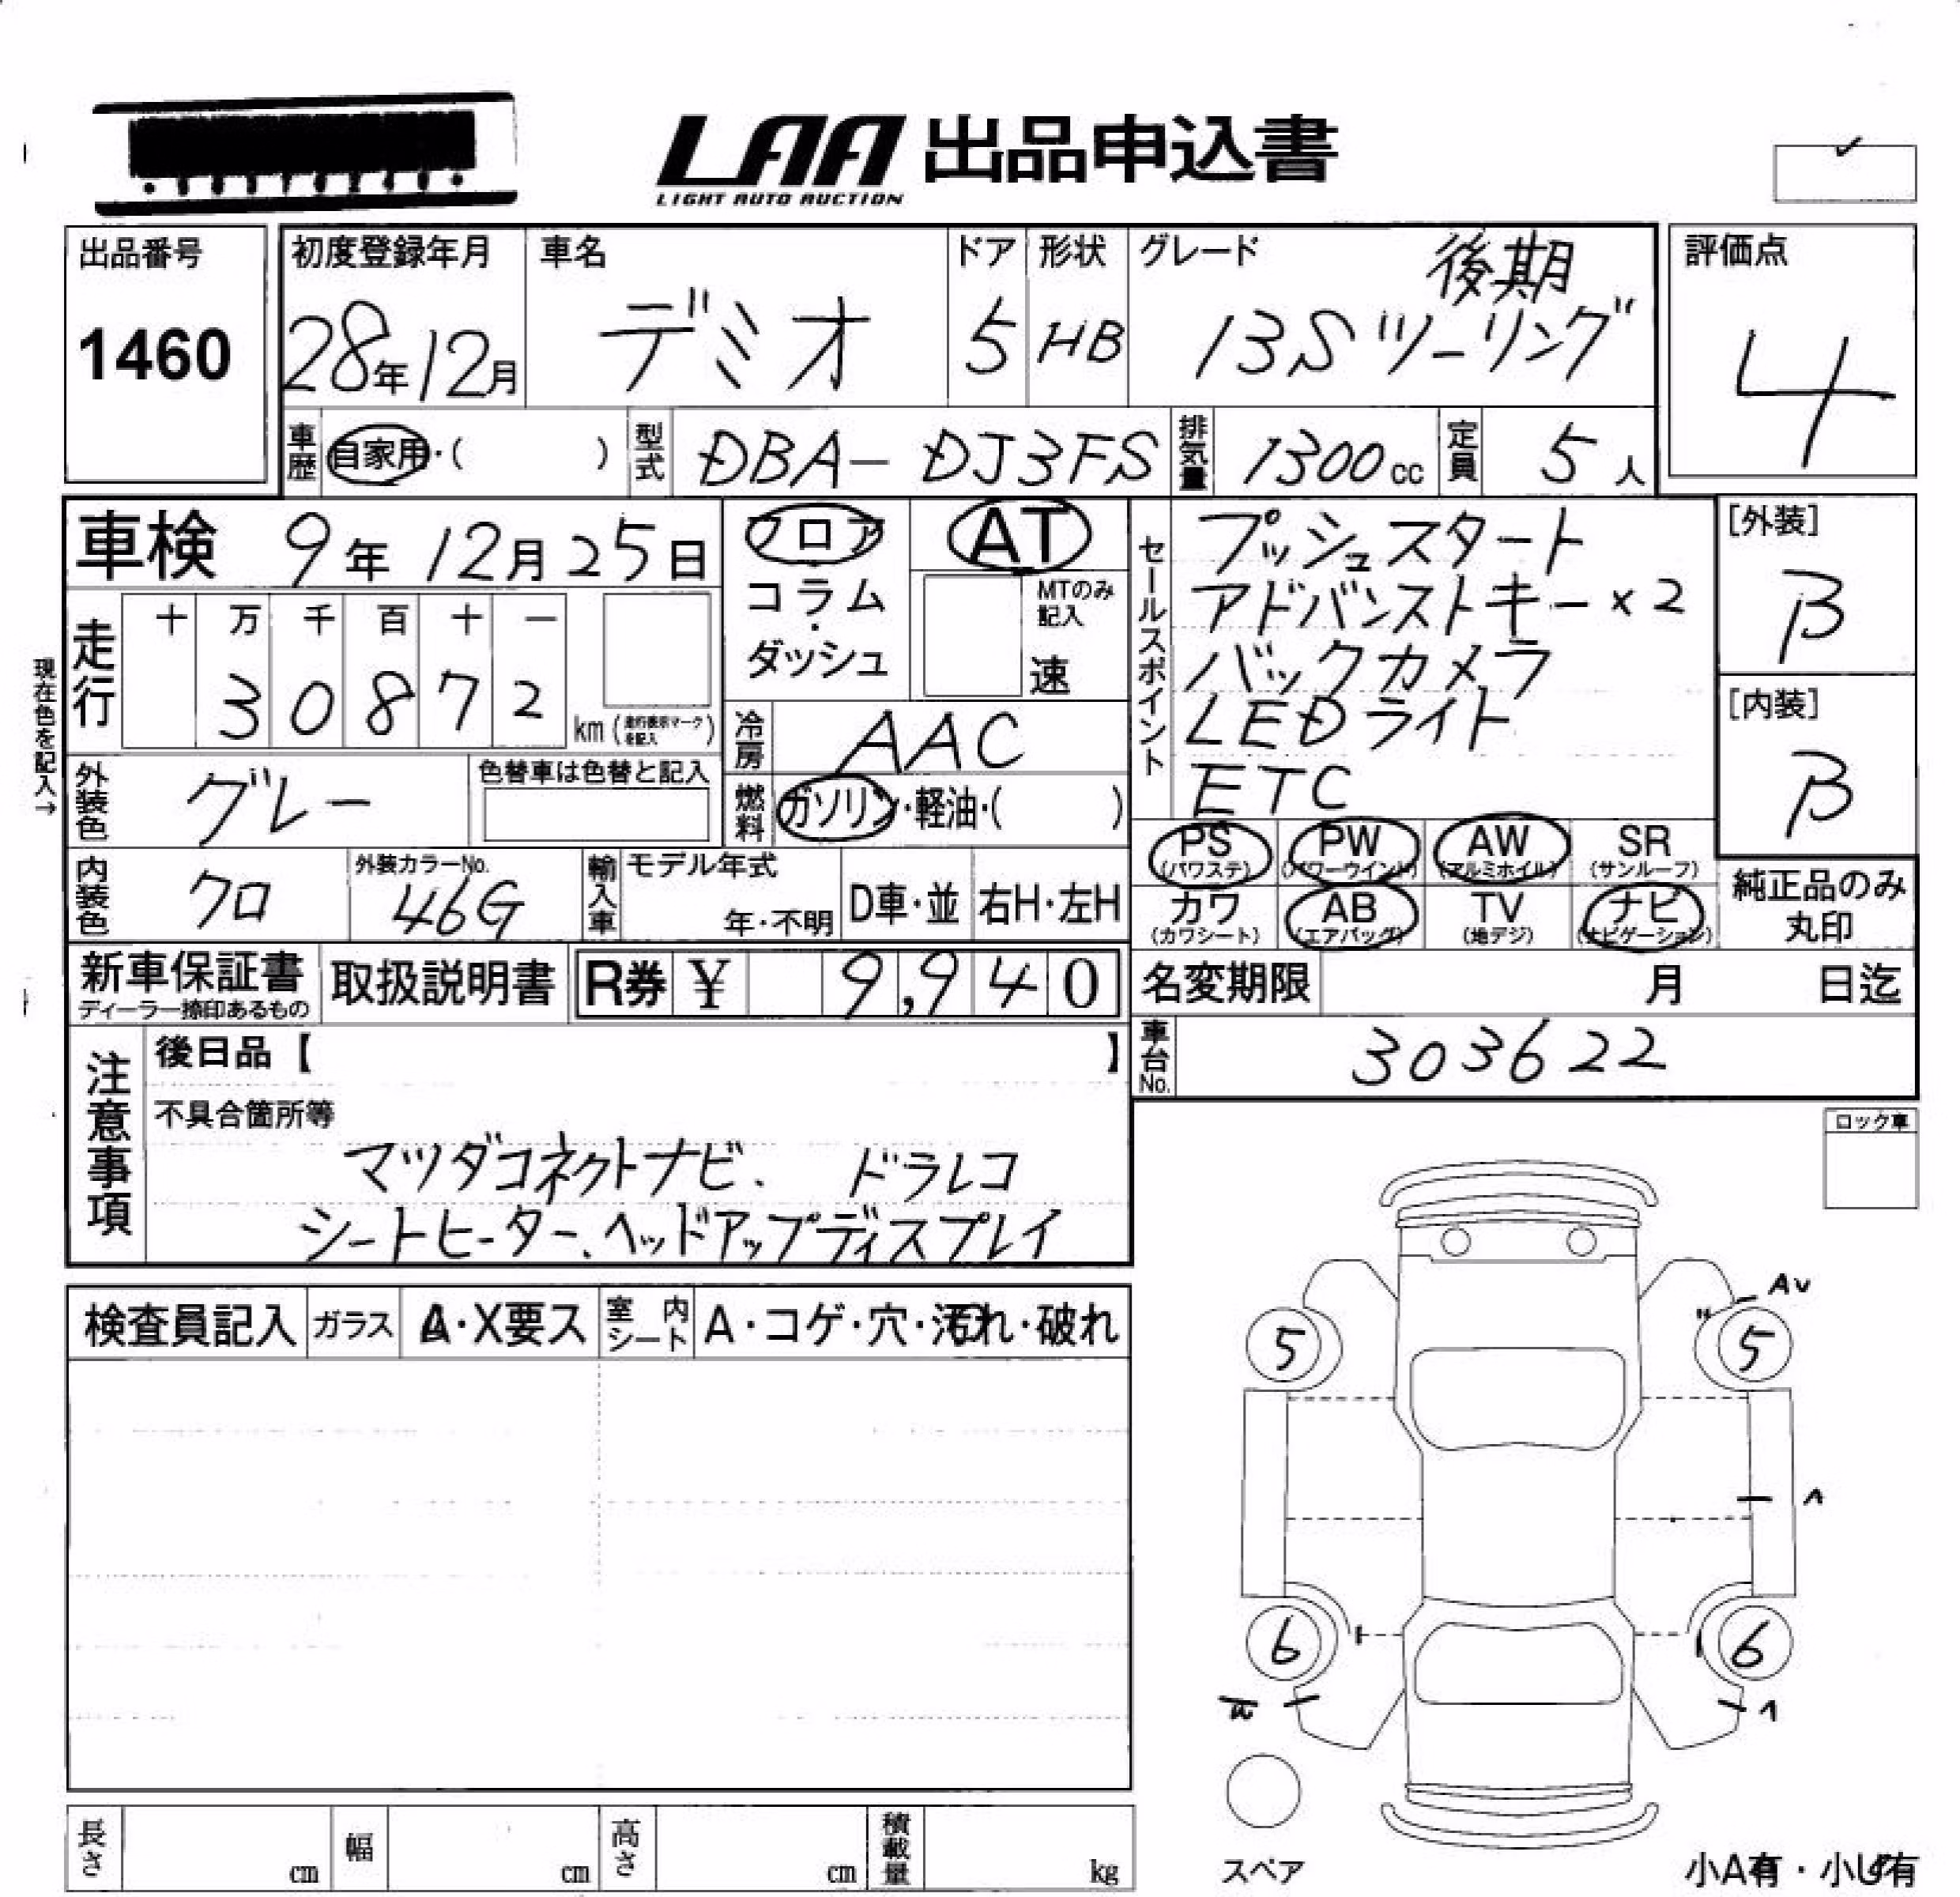 LAA 出品申込書
LIGHT AUTO AUCTION
出品番号
1460
初度登録年月
28年12月
車名
デミオ
ドア
5
形状
HB
グレード
後期
13Sツーリング
評価点
4
車歴
自家用・( )
型式
DBA-DJ3FS
排気量
1300cc
定員
5人
車検 9年 12月 25日
フロア
コラム
・
ダッシュ
AT
MTのみ
記入
速
セールスポイント
プッシュスタート
アドバンストキー×2
バックカメラ
LEDライト
ETC
[外装]
B
[内装]
B
現在色を記入→
走行
十 万 千 百 十 一
3 0 8 7 2
km(走行表示マークを記入)
冷房
AAC
外装色
グレー
色替車は色替と記入
燃料
ガソリン・軽油・( )
PS
(パワステ)
PW
(パワーウインド)
AW
(アルミホイル)
SR
(サンルーフ)
カワ
(カワシート)
AB
(エアバッグ)
TV
(地デジ)
ナビ
(ナビゲーション)
純正品のみ
丸印
内装色
クロ
外装カラーNo.
46G
輸入車
モデル年式
年・不明
D車・並
右H・左H
新車保証書
ディーラー捺印あるもの
取扱説明書
R券 ¥ 9,940
名変期限 月 日迄
車台No.
303622
注意事項
後日品【 】
不具合箇所等
マツダコネクトナビ、ドラレコ
シートヒーター、ヘッドアップディスプレイ
ロック車
検査員記入
ガラス
A・X要ス
室内シート
A・コゲ・穴・汚れ・破れ
AU
5
5
6
6
スペア
長さ cm
幅 cm
高さ cm
積載量 kg
小A有・小U有